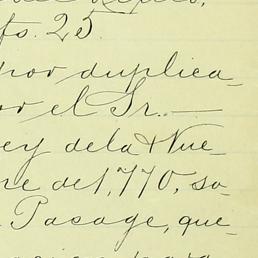 fs. 25.
por duplica-
or el Sr.—
ey de la Nue-
re de 1,770, so-
Pasage, que-